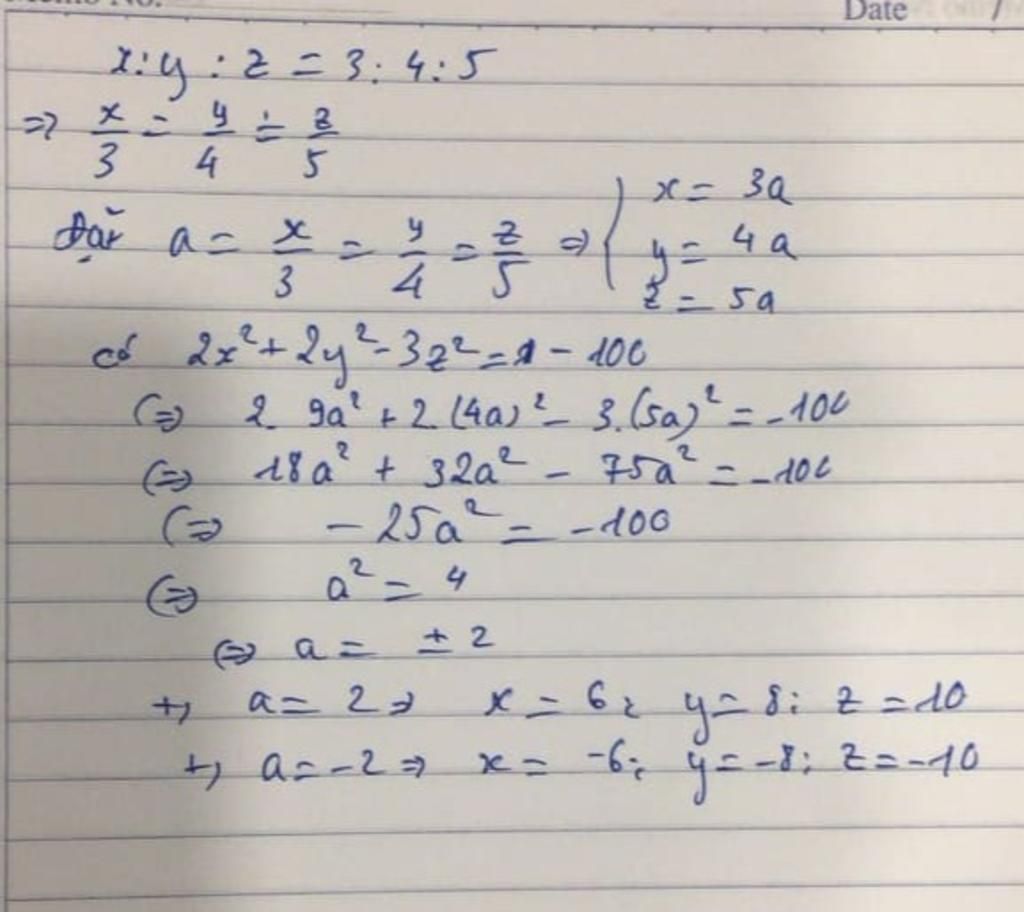 Date /
x:y : z = 3: 4: 5
=> x/3 = y/4 = z/5
Đặt a = x/3 = y/4 = z/5 => { x = 3a
y = 4a
z = 5a
có 2x² + 2y² - 3z² = - 100
(=) 2. 9a² + 2. (4a)² - 3.(5a)² = -100
(=) 18a² + 32a² - 75a² = -100
(=) - 25a² = -100
(=) a² = 4
(=) a = ± 2
+, a = 2 => x = 6; y = 8; z = 10
+, a = -2 => x = -6; y = -8; z = -10